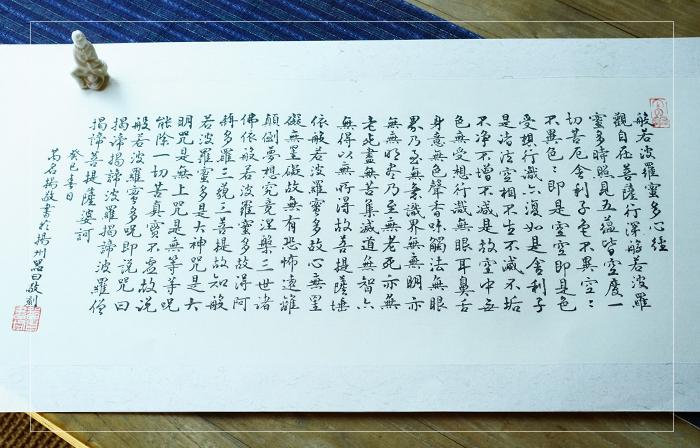 般若波羅蜜多心經
觀自在菩薩行深般若波羅
蜜多時照見五蘊皆空度一
切苦厄舍利子色不異空々
不異色々即是空空即是色
受想行識亦復如是舍利子
是諸法空相不生不滅不垢
不淨不增不減是故空中無
色無受想行識無眼耳鼻舌
身意無色聲香味觸法無眼
界乃至無意識界無無明亦
無無明盡乃至無老死亦無
老死盡無苦集滅道無智亦
無得以無所得故菩提薩埵
依般若波羅蜜多故心無罣
礙無罣礙故無有恐怖遠離
顛倒夢想究竟涅槃三世諸
佛依般若波羅蜜多故得阿
耨多羅三藐三菩提故知般
若波羅蜜多是大神咒是大
明咒是無上咒是無等等咒
能除一切苦真實不虛故說
般若波羅蜜多咒即說咒曰
揭諦揭諦波羅揭諦波羅僧
揭諦菩提薩婆訶
癸巳春日
書於揚州